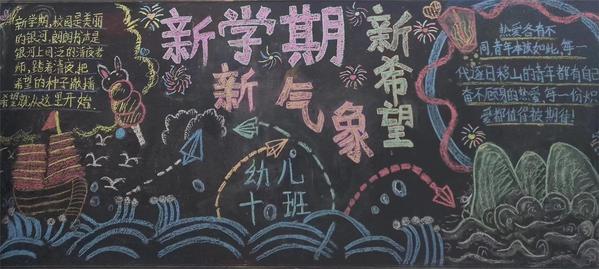 新学期,校园是美丽
的银河,朗朗书声是
银河上泛的清波老
师,踏着清波,把
希望的种子散播
希望就从这里开始
新学期
新气象
新希望
幼儿
十班
热爱各有不
同青年本该如此,每一
代逐日移山的青年都有自己
奋不顾身的热爱,每一份炽
爱都值得被期待!